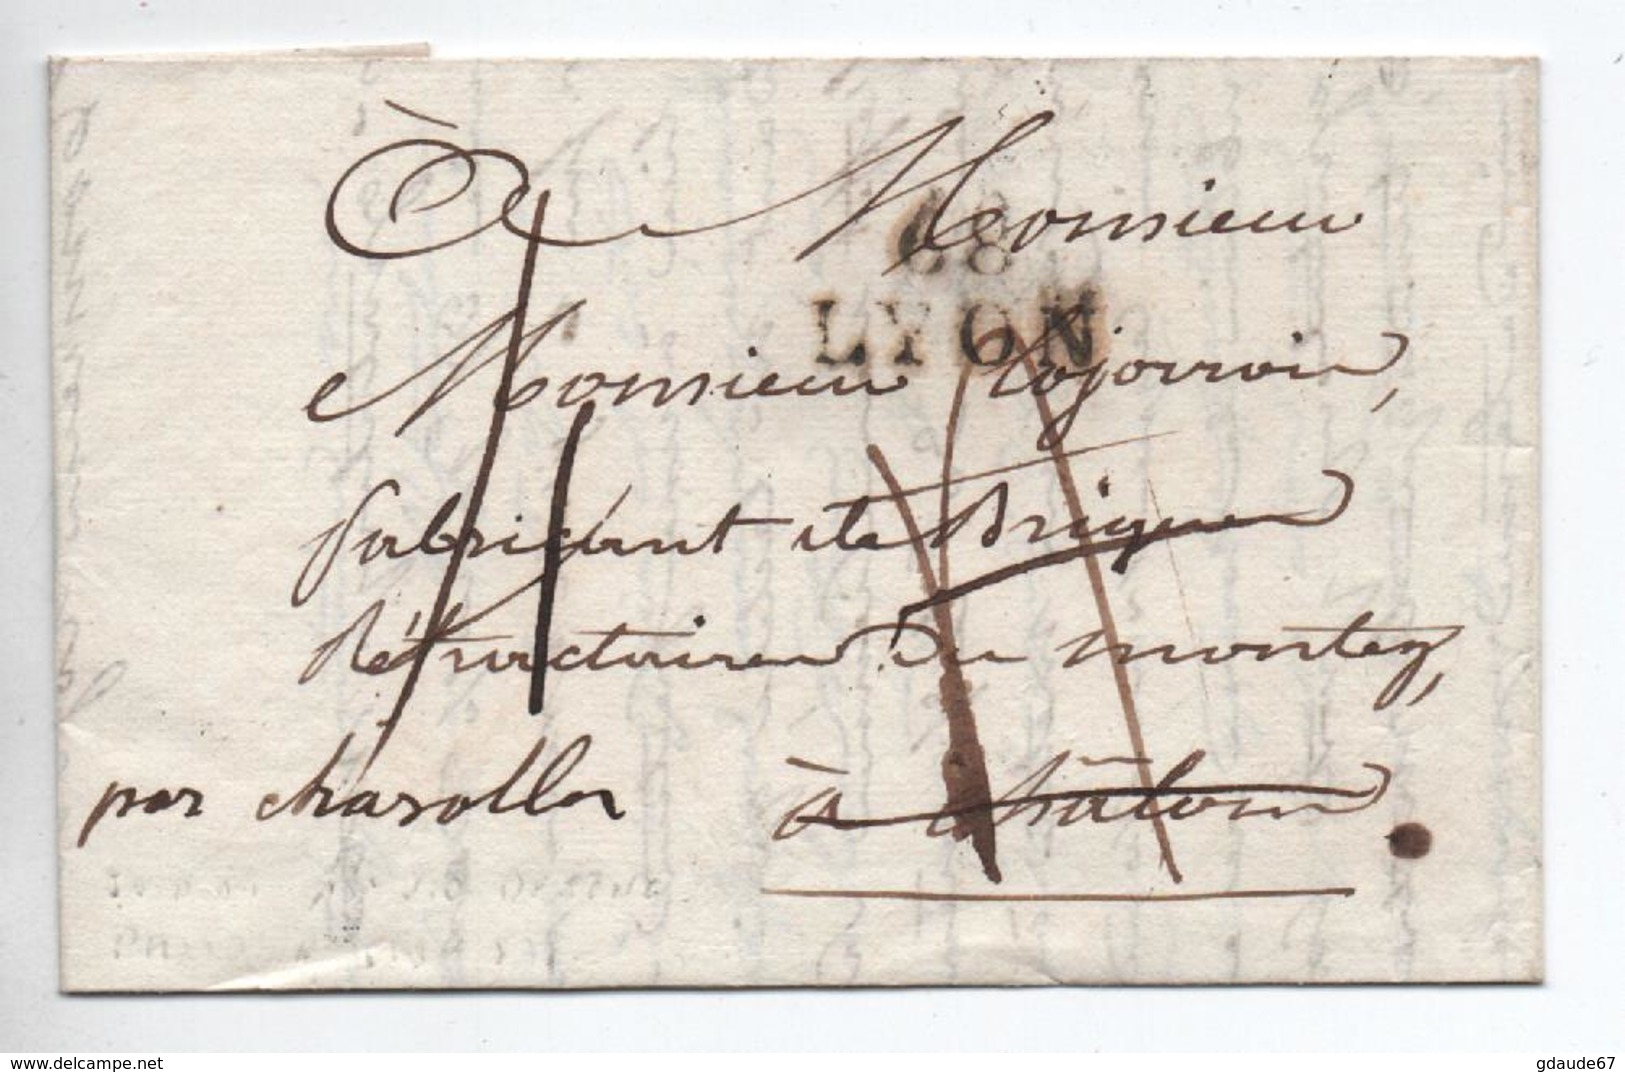 À Monsieur
68
LYON
Monsieur Lajorrois,
fabricant de Briques
Réfractaires Du montez,
par charolles
à Châlons
delcampe.net
gdaude67